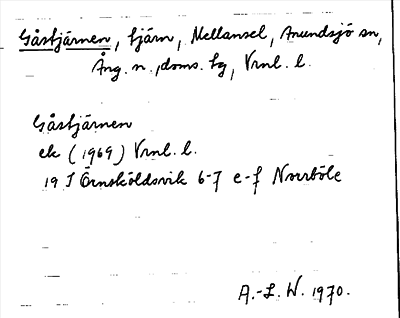 Gåstjärnen, tjärn, Mellansel, Anundsjö sn,
Ång. n., doms. bg, Vrnl. l.
Gåstjärnen
ek (1969) Vrnl. l.
19 I Örnsköldsvik 6-7 e-f Norrböle
A.-L. W. 1970.